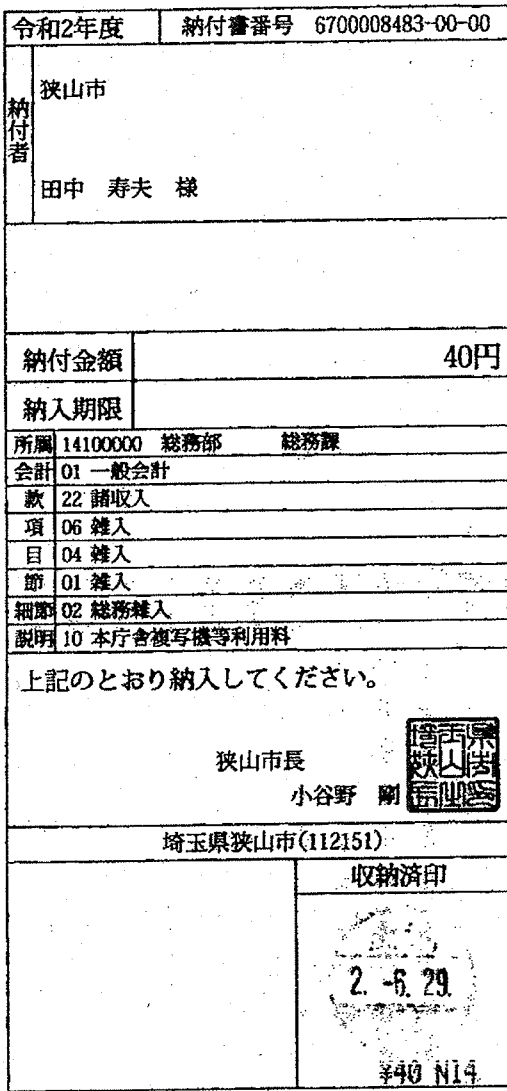 令和2年度 納付書番号 6700008483-00-00
納付者
狭山市
田中 寿夫 様
納付金額 40円
納入期限
所属 14100000 総務部 総務課
会計 01 一般会計
款 22 諸収入
項 06 雑入
目 04 雑入
節 01 雑入
細節 02 総務雑入
説明 10 本庁舎複写機等利用料
上記のとおり納入してください。
狭山市長
小谷野 剛
埼玉県狭山市(112151)
収納済印
2. -6. 29.
¥40 N14